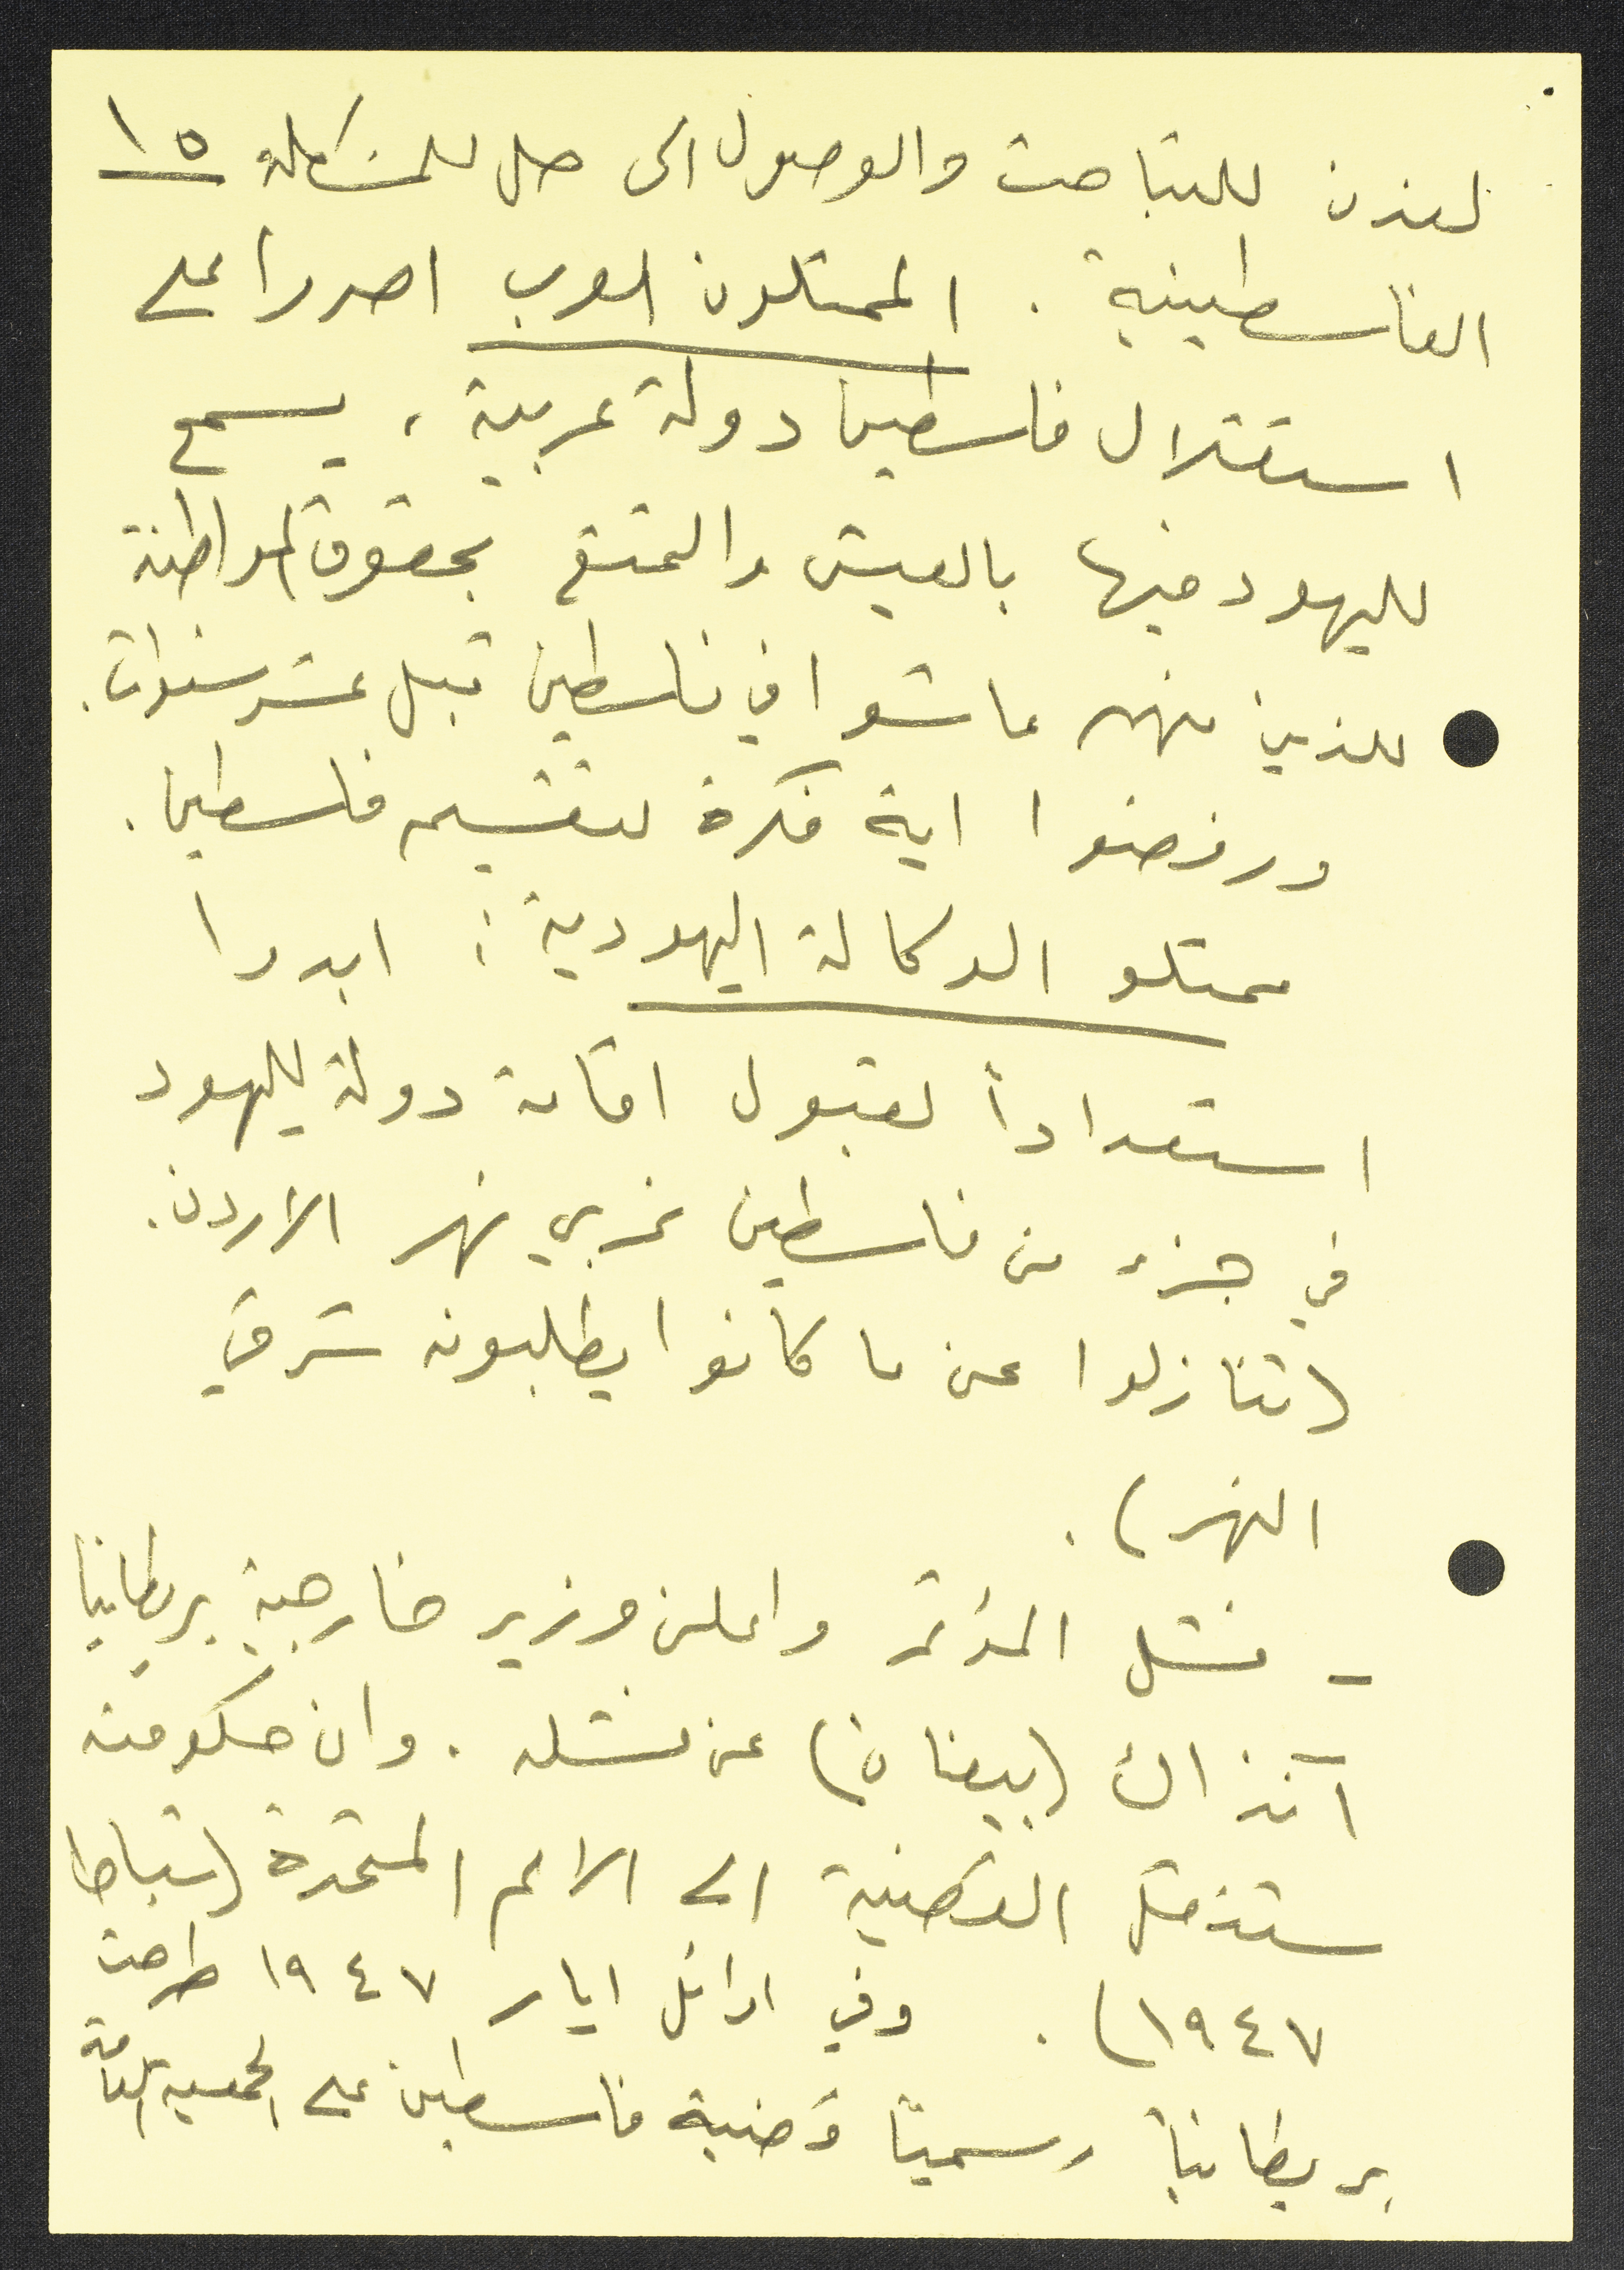 لندن للتباحث والوصول الى حل للمشكلة ١٥
الفلسطينية . الممثلون العرب اصروا على
استقلال فلسطين دولة عربية ، يسمح
لليهود فيها بالعيش والتمتع بحقوق المواطنة
للذين منهم عاشوا في فلسطين قبل عشر سنوات .
ورفضوا اية فكرة لتقسيم فلسطين .
ممثلو الوكالة اليهودية : ابدوا
استعداداً لقبول اقامة دولة لليهود
في جزء من فلسطين غربي نهر الاردن .
(تنازلوا عن ما كانوا يطلبونه شرقي
النهر) .
- فشل المؤتمر واعلن وزير خارجية بريطانيا
آنذاك (بيفان) عن فشله . وان حكومته
ستنقل القضية الى الامم المتحدة (شباط
١٩٤٧) . وفي اوائل ايار ١٩٤٧ طرحت
بريطانيا رسميّا قضية فلسطين على الجمعية العامة